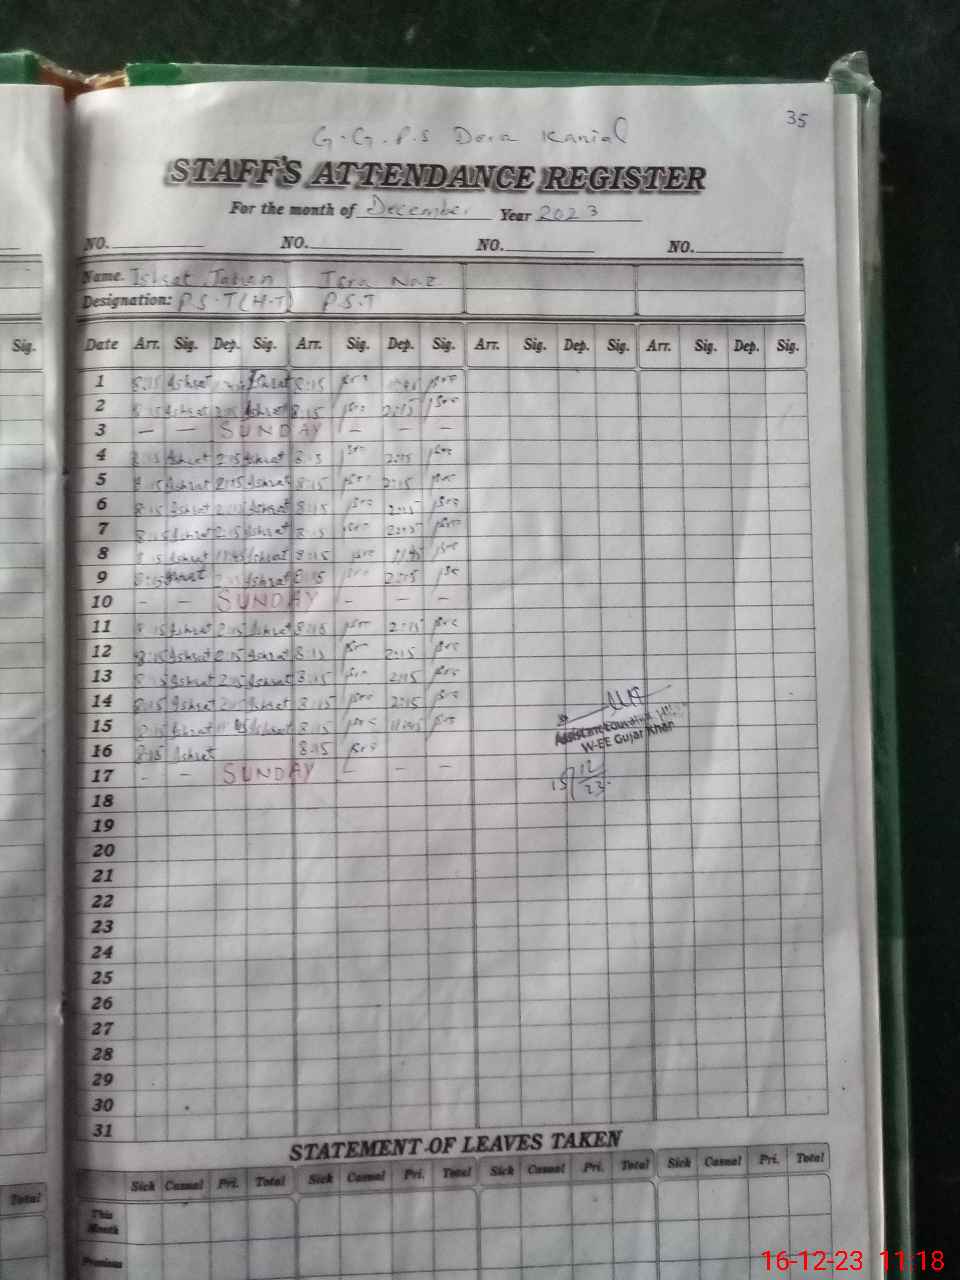 35
G.G.P.S Dora Kanial
STAFF'S ATTENDANCE REGISTER
For the month of December Year 2023
NO. NO. NO. NO.
Name. Ishrat Jahan Isra Naz
Designation: P.S.T (H.T) P.S.T
Sig. Date Arr. Sig. Dep. Sig. Arr. Sig. Dep. Sig. Arr. Sig. Dep. Sig. Arr. Sig. Dep. Sig.
1 8:15 Ishrat Ishrat 8:15
2 8:15 Ishrat 2:15 Ishrat 8:15 2:15
3 — — SUNDAY — — —
4 8:15 Ishrat 2:15 Ishrat 2:15
5 8:15 Ishrat 2:15 Ishrat 8:15 2:15
6 8:15 Ishrat 2:15 Ishrat 8:15 2:15
7 8:15 Ishrat 2:15 Ishrat 8:15
8 8:15 Ishrat 11:45 Ishrat 8:15 11:45
9 8:15 Ishrat Ishrat 8:15 2:15
10 — — SUNDAY — — —
11 8:15 Ishrat 2:15 Ishrat 8:15 2:15
12 8:15 Ishrat 2:15 Ishrat 8:15 2:15
13 8:15 Ishrat 2:15 Ishrat 8:15 2:15
14 8:15 Ishrat Ishrat 8:15 2:15
15 Ishrat 11:45 Ishrat 8:15 11:45
16 8:15 Ishrat 8:15
17 - — SUNDAY — — —
Assistant Education
W-EE Gujar Khan
15/12/23.
18
19
20
21
22
23
24
25
26
27
28
29
30
31
STATEMENT OF LEAVES TAKEN
Total Sick Casual Pri. Total Sick Casual Pri. Total Sick Casual Pri. Total Sick Casual Pri. Total
This
Month
Previous
16-12-23 11:18